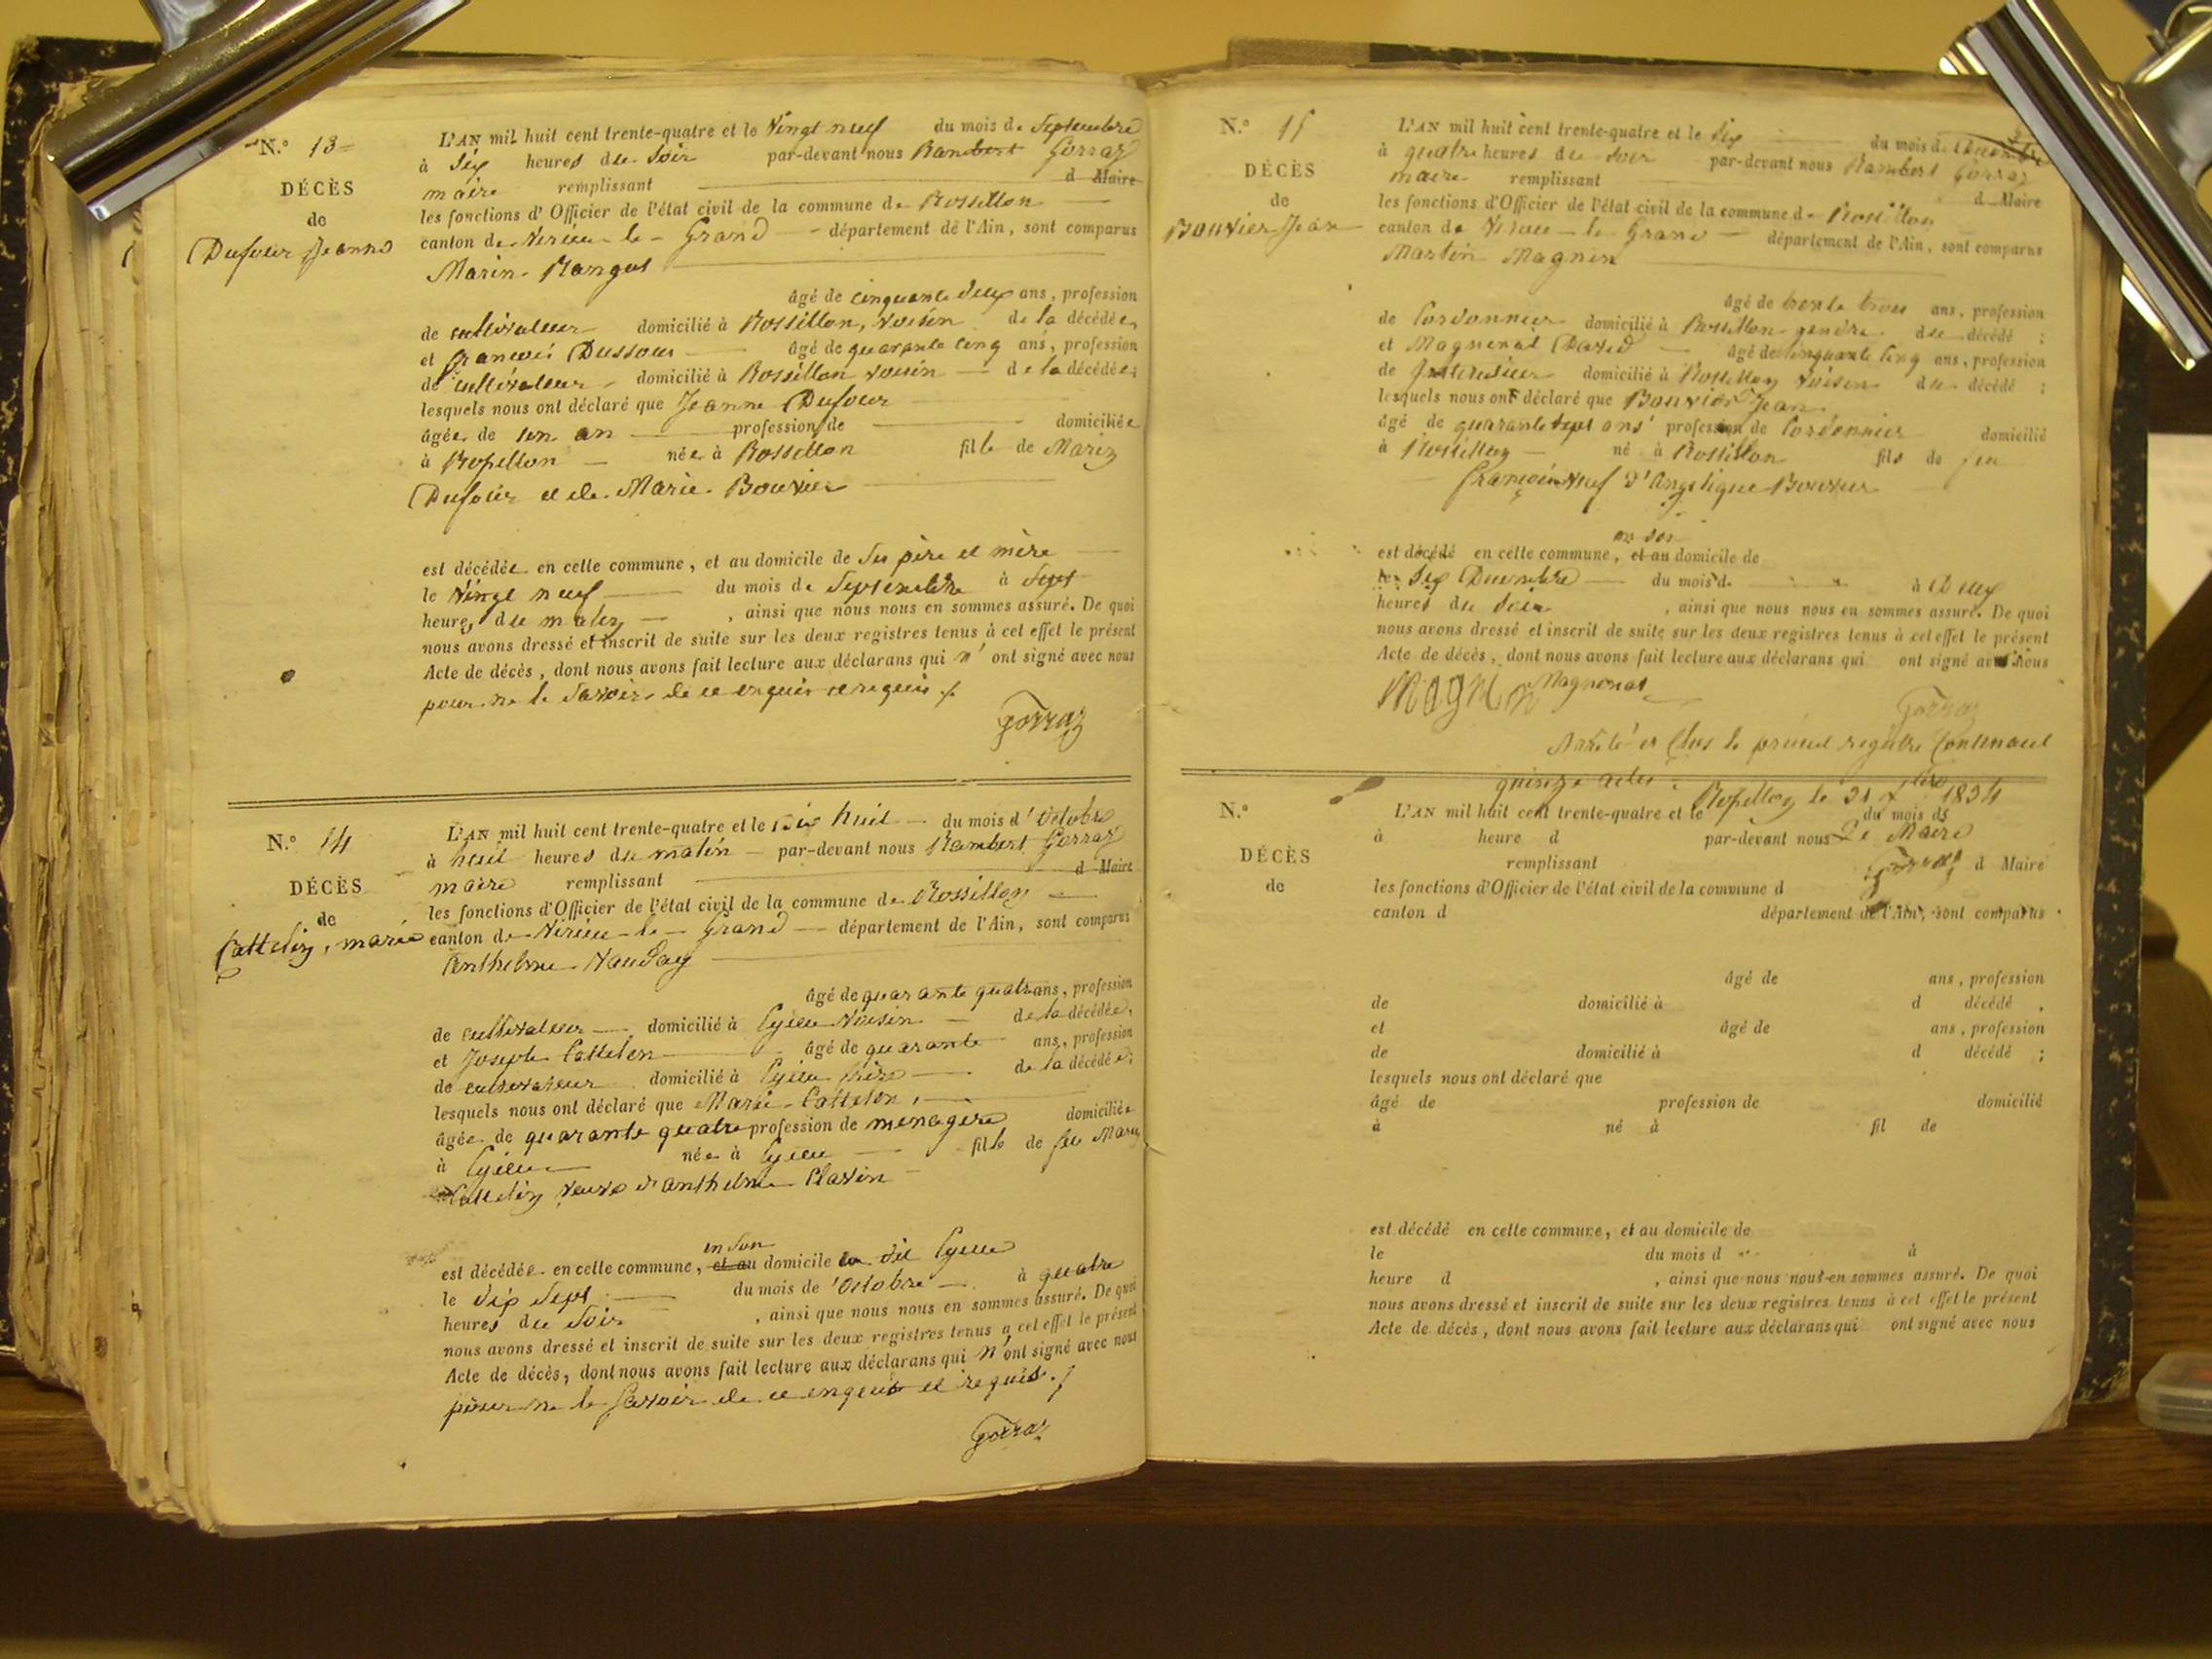 N.° 13
DÉCÈS
de
Dufour Jeanne
L'AN mil huit cent trente-quatre et le Vingt neuf du mois de Septembre
à Six heures du Soir par-devant nous Rambert Gorraz
maire remplissant d Maire
les fonctions d'Officier de l'état civil de la commune de Rossillon
canton de Virieu-le-Grand département de l'Ain, sont comparus
Marin
âgé de cinquante deux ans, profession
de cultivateur domicilié à Rossillon, voisin de la décédée,
et françois Dussour âgé de quarante cinq ans, profession
de cultivateur domicilié à Rossillon voisin de la décédée;
lesquels nous ont déclaré que Jeanne Dufour
âgée de un an profession de domiciliée
à Rossillon née à Rossillon fille de Marin
Dufour et de Marie Bouvier
est décédée en cette commune, et au domicile de Ses père et mère
le Vingt neuf du mois de Septembre à Sept
heures du matin, ainsi que nous nous en sommes assuré. De quoi
nous avons dressé et inscrit de suite sur les deux registres tenus à cet effet le présent
Acte de décès, dont nous avons fait lecture aux déclarans qui n'ont signé avec nous
pour ne le Savoir de ce enquis et requis ./.
Gorraz
N.° 14
DÉCÈS
de
Cattelin, marie
L'AN mil huit cent trente-quatre et le dix huit du mois d'Octobre
à huit heures du matin par-devant nous Rambert Gorraz
maire remplissant d Maire
les fonctions d'Officier de l'état civil de la commune de Rossillon
canton de Virieu-le-Grand département de l'Ain, sont comparus
Anthelme
âgé de quarante quatre ans, profession
de cultivateur domicilié à Cyieu voisin de la décédée,
et Joseph Cattelin âgé de quarante ans, profession
de cultivateur domicilié à Cyieu frère de la décédée;
lesquels nous ont déclaré que Marie Cattelin,
âgée de quarante quatre profession de menagere domiciliée
à Cyieu née à Cyieu fille de feu Marin
Cattelin veuve d'anthelme Clavin
est décédée en cette commune, et au en Son domicile au dit Cyieu
le dix Sept du mois de Octobre à quatre
heures du Soir, ainsi que nous nous en sommes assuré. De quoi
nous avons dressé et inscrit de suite sur les deux registres tenus à cet effet le présent
Acte de décès, dont nous avons fait lecture aux déclarans qui n'ont signé avec nous
pour ne le Savoir de ce enquis et requis ./.
Gorraz
N.° 15
DÉCÈS
de
Bouvier Jean
L'AN mil huit cent trente-quatre et le Six du mois de Decembre
à quatre heures du soir par-devant nous Rambert Gorraz
maire remplissant d Maire
les fonctions d'Officier de l'état civil de la commune de Rossillon
canton de Virieu-le-Grand département de l'Ain, sont comparus
Martin Magnin
âgé de trente trois ans, profession
de Cordonnier domicilié à Rossillon gendre du décédé;
et Magnenat David âgé de cinquante cinq ans, profession
de domicilié à Rossillon voisin du décédé;
lesquels nous ont déclaré que Bouvier Jean
âgé de quarante sept ans profession de Cordonnier domicilié
à Rossillon né à Rossillon fils de feu
François veuf d'Angelique Bouvier
est décédé en cette commune, et au en son domicile de
le Six Decembre du mois d à Deux
heures du Soir, ainsi que nous nous en sommes assuré. De quoi
nous avons dressé et inscrit de suite sur les deux registres tenus à cet effet le présent
Acte de décès, dont nous avons fait lecture aux déclarans qui ont signé avec nous
Magnin Magnenat
Gorraz
Arrêté et Clos le présent registre Contenant
quinze actes. Rossillon le 31 Xbre 1834
Le Maire
Gorraz
N.°
DÉCÈS
de
L'AN mil huit cent trente-quatre et le du mois d
à heure d par-devant nous
remplissant d Maire
les fonctions d'Officier de l'état civil de la commune d
canton d département de l'Ain, sont comparus
âgé de ans, profession
de domicilié à d décédé,
et âgé de ans, profession
de domicilié à d décédé;
lesquels nous ont déclaré que
âgé de profession de domicilié
à né à fil de
est décédé en cette commune, et au domicile de
le du mois d à
heure d, ainsi que nous nous en sommes assuré. De quoi
nous avons dressé et inscrit de suite sur les deux registres tenus à cet effet le présent
Acte de décès, dont nous avons fait lecture aux déclarans qui ont signé avec nous